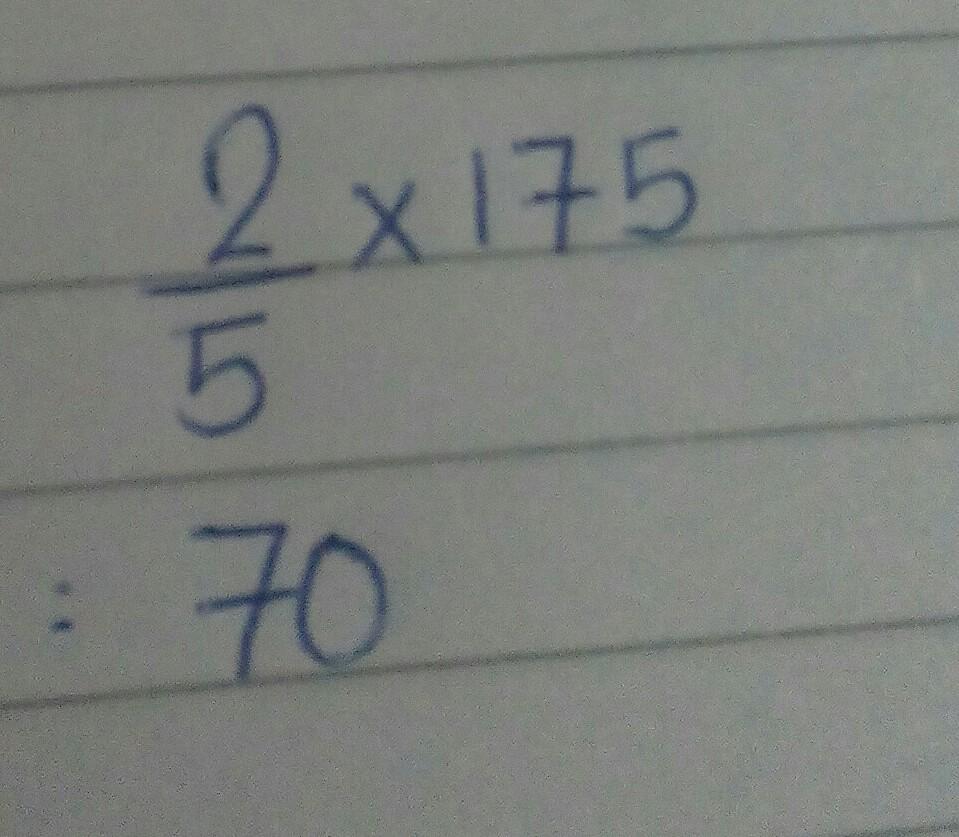 2/5 x 175
: 70